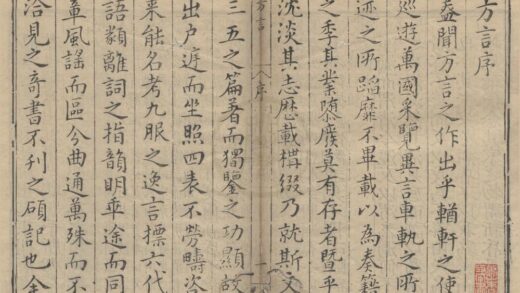 方言序
蓋聞方言之作出乎輶軒之使
巡遊萬國采覽異言車軌之所
迹之所蹈靡不畢載以為奏籍
之季其業隳廢莫有存者暨乎
沈淡其志歷載構綴乃就斯文
方言 序 一
三五之篇著而獨鑒之功顯故
出户庭而坐照四表不勞疇咨
來能名考九服之逸言標六代
語類離詞之指韻明乖途而同
章風謠而區分曲通萬殊而不
洽見之奇書不刊之碩記也余